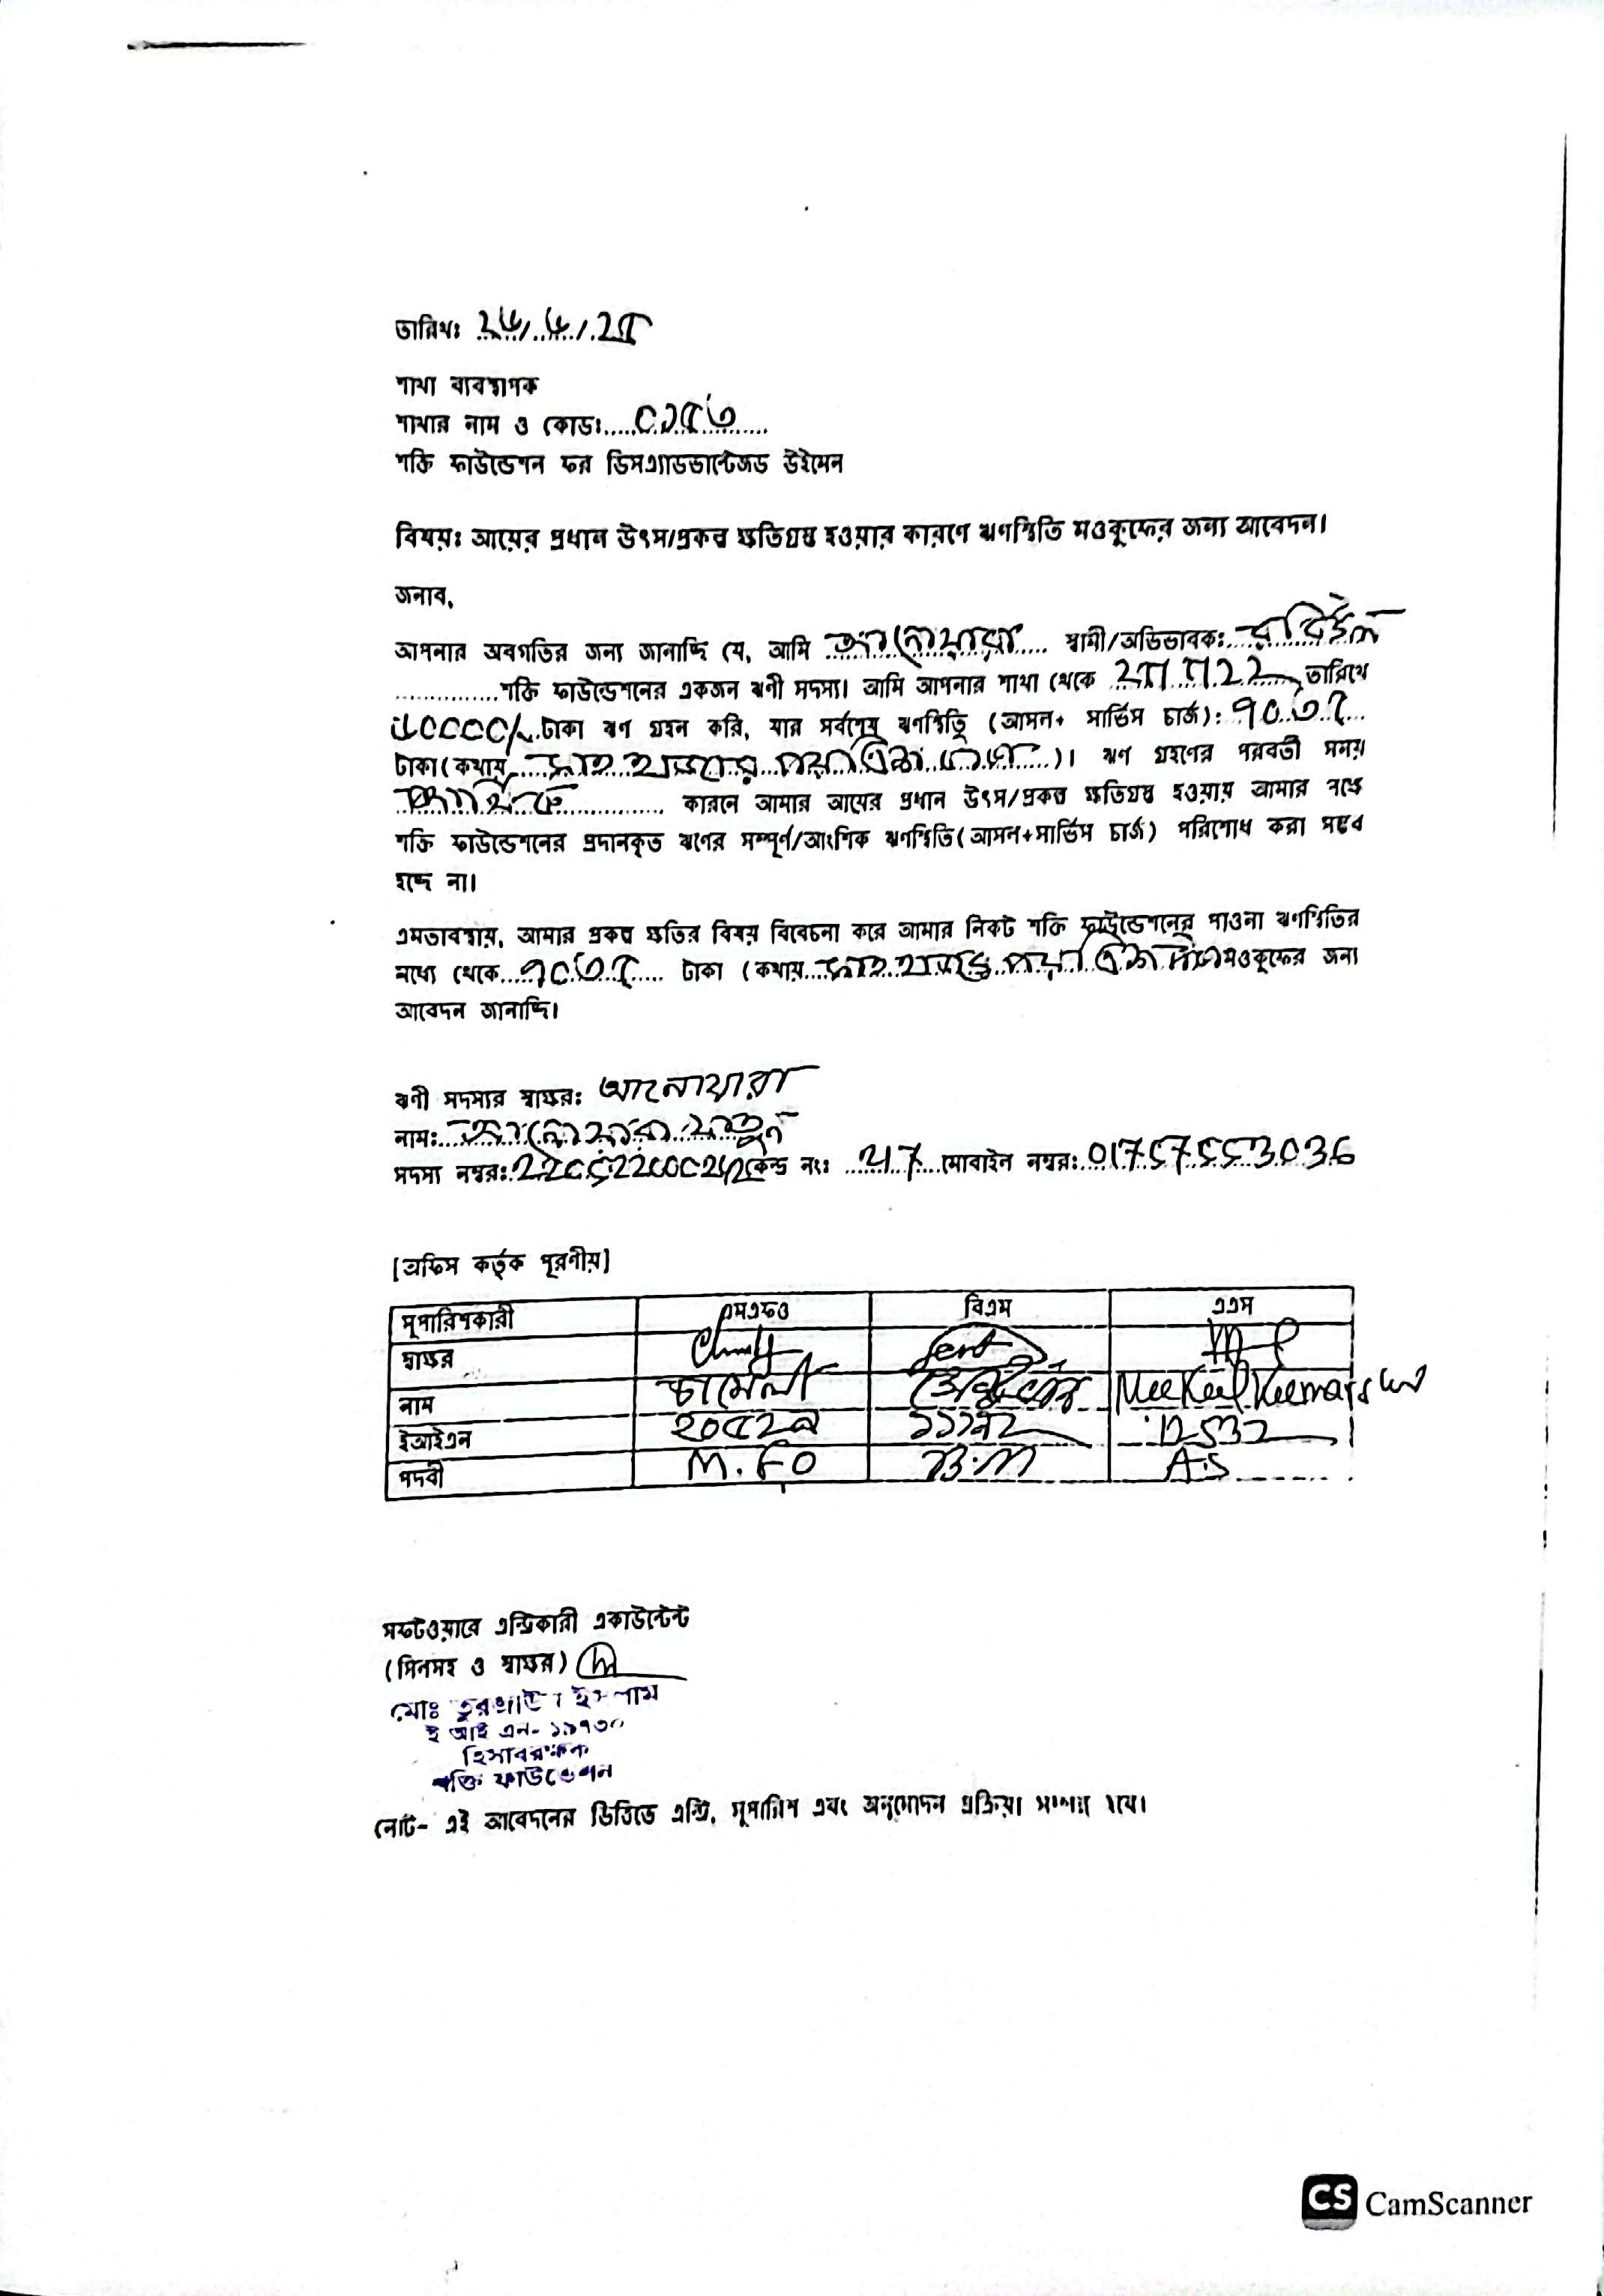 তারিখঃ ২৬/৬/২৫
শাখা ব্যবস্থাপক
শাখার নাম ও কোডঃ ০১৫৩
শক্তি ফাউন্ডেশন ফর ডিসএ্যাডভান্টেজড উইমেন
বিষয়ঃ আয়ের প্রধান উৎস/প্রকল্প ক্ষতিগ্রস্ত হওয়ার কারণে ঋণস্থিতি মওকুফের জন্য আবেদন।
জনাব,
আপনার অবগতির জন্য জানাচ্ছি যে, আমি আনোয়ারা স্বামী/অভিভাবকঃ
শক্তি ফাউন্ডেশনের একজন ঋণী সদস্য। আমি আপনার শাখা থেকে তারিখে
টাকা ঋণ গ্রহন করি, যার সর্বশেষ ঋণস্থিতি (আসল+ সার্ভিস চার্জ): ৭০৩৫
টাকা(কথায় সাত হাজার পয়ত্রিশ টাকা)। ঋণ গ্রহণের পরবর্তী সময়
কারনে আমার আয়ের প্রধান উৎস/প্রকল্প ক্ষতিগ্রস্ত হওয়ায় আমার পক্ষে
শক্তি ফাউন্ডেশনের প্রদানকৃত ঋণের সম্পূর্ণ/আংশিক ঋণস্থিতি(আসল+সার্ভিস চার্জ) পরিশোধ করা সম্ভব
হচ্ছে না।
এমতাবস্থায়, আমার প্রকল্প ক্ষতির বিষয় বিবেচনা করে আমার নিকট শক্তি ফাউন্ডেশনের পাওনা ঋণস্থিতির
মধ্যে থেকে ৭০৩৫ টাকা (কথায় সাত হাজার পয়ত্রিশ টাকা মওকুফের জন্য
আবেদন জানাচ্ছি।
ঋণী সদস্যর স্বাক্ষরঃ আনোয়ারা
নাম: আনোয়ারা খাতুন
সদস্য নম্বর: কেন্দ্র নং: 217 মোবাইল নম্বর: 01757553036
[অফিস কর্তৃক পূরণীয়]
সুপারিশকারী এমএফও বিএম এএস
স্বাক্ষর
নাম চামেলী
ইআইএন ২০৫২৯ ১১১৭২ 12532
পদবী M.FO B.M A.S
সফটওয়ারে এন্ট্রিকারী একাউন্টেন্ট
(সিলসহ ও স্বাক্ষর)
মোঃ ইসলাম
ই আই এন- ১৯৭৩০
হিসাবরক্ষক
শক্তি ফাউন্ডেশন
নোট- এই আবেদনের ভিত্তিতে এন্ট্রি, সুপারিশ এবং অনুমোদন প্রক্রিয়া সম্পন্ন হবে।
CS CamScanner